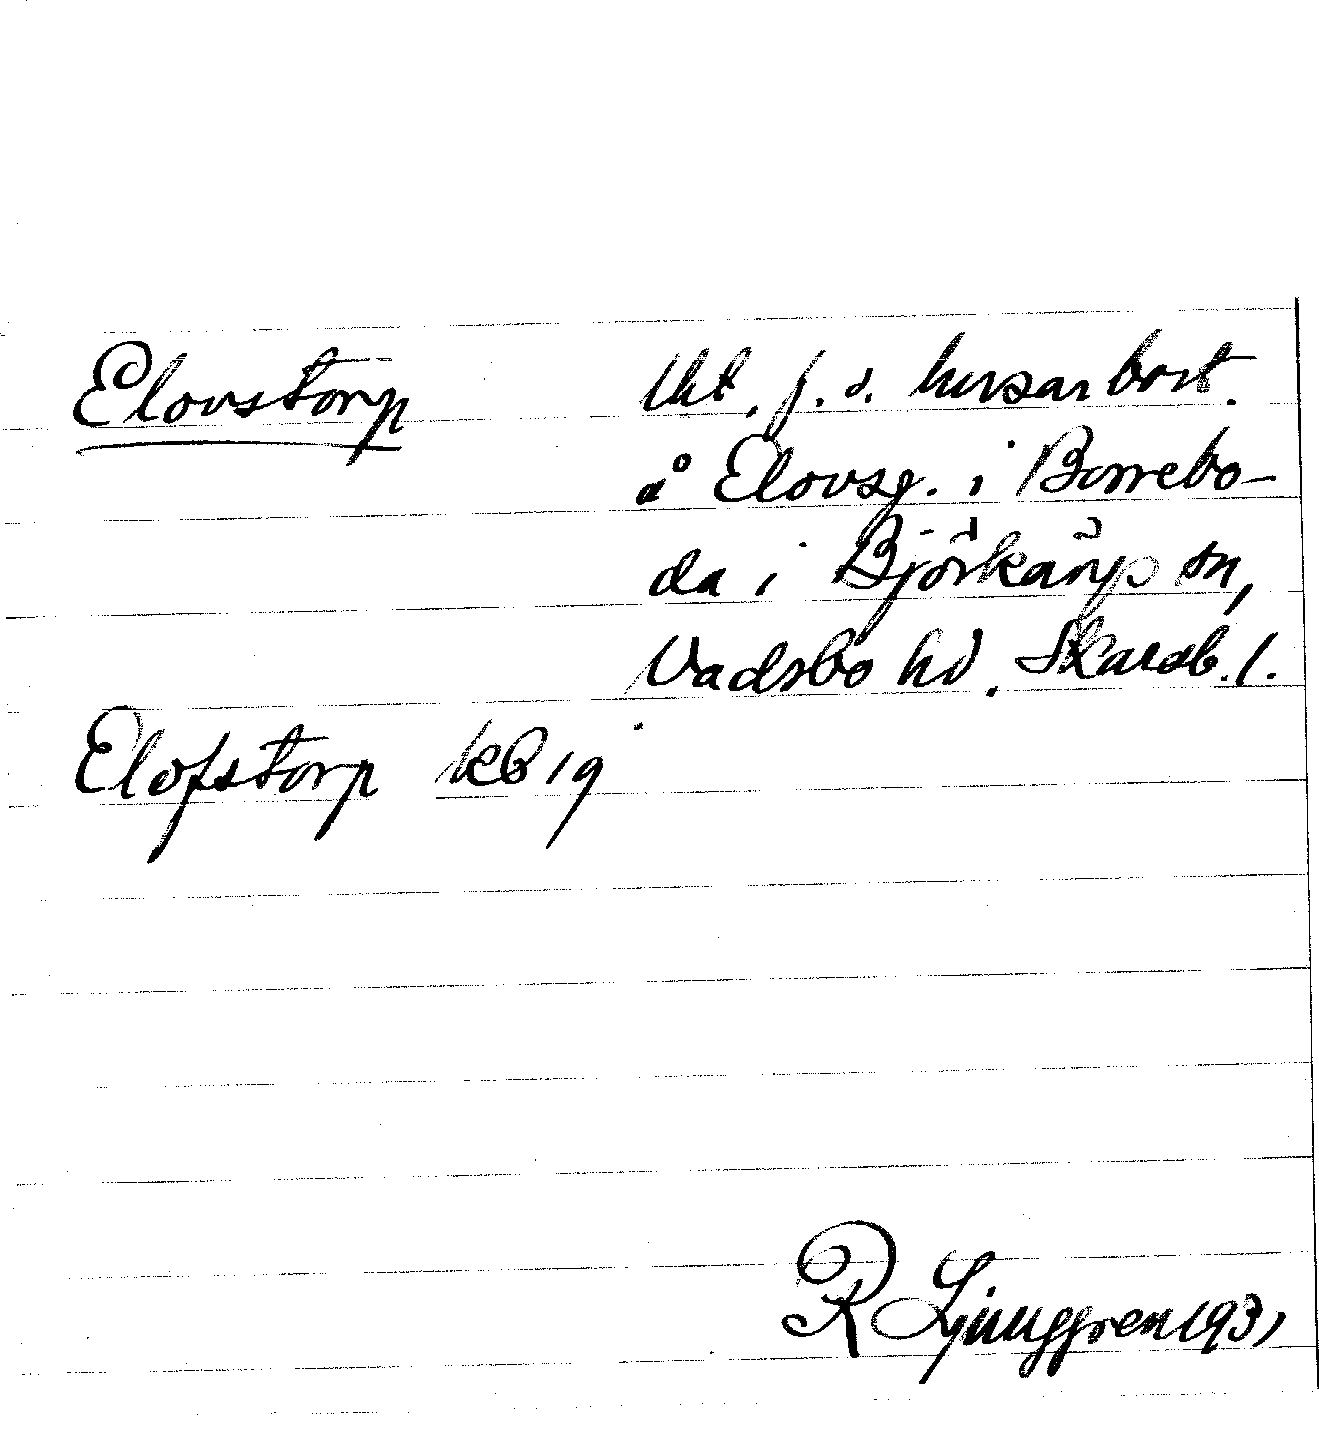 Elovstorp lht, f.d. husarbost.
å Elovsg. i Borrebo-
da i Björkäng sn,
Vadsbo hd. Skarab. l.
Elofstorp kb 19
R Ljunggren 1931